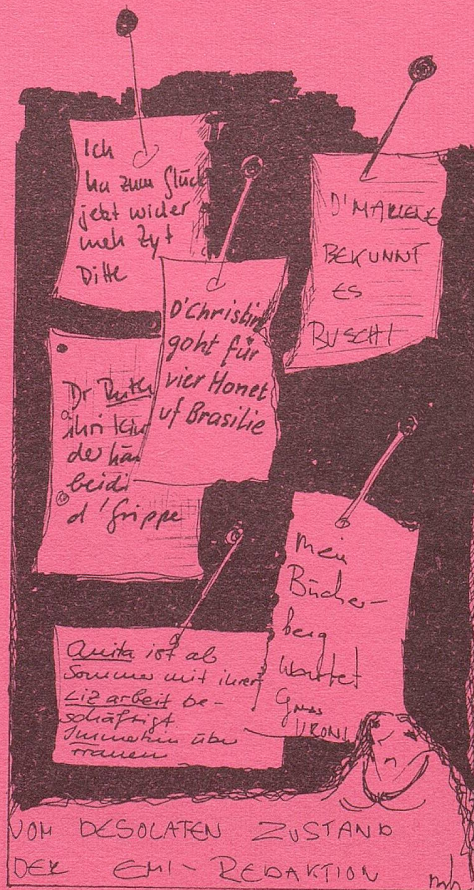 Ich
ha zum Glück
jetzt wider
meh Zyt
Ditte
D'MARLENE
BEKUNNT
ES
BUSCHI
D'Christin
goht für
vier Monet
uf Brasilie
Dr Ruth
ihri Kin
der hän
beidi
d'Grippe
Mein
Bücher-
berg
wartet
Gruss
VRONI
Anita ist ab
Sommer mit ihrer
Liz arbeit be-
schäftigt
Immerhin über
Frauen
VOM DESOLATEN ZUSTAND
DER EMI-REDAKTION